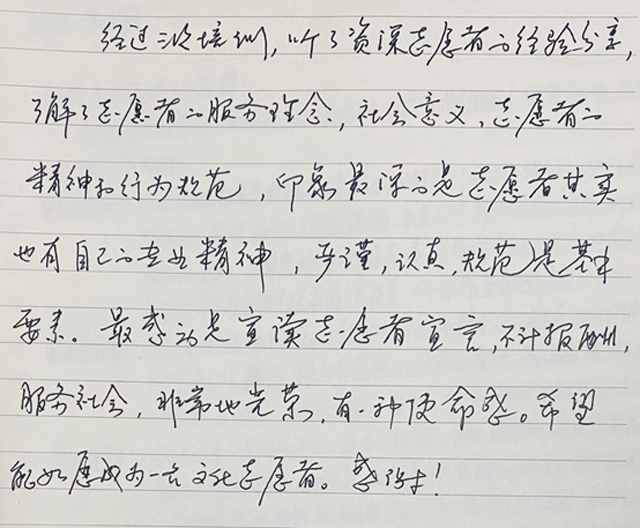 经过这次培训，听了资深志愿者的经验分享，
了解了志愿者的服务理念、社会意义、志愿者的
精神和行为规范，印象最深的是志愿者其实
也有自己的专业精神，严谨，认真，规范是基本
要素。最感动是宣读志愿者宣言，不计报酬，
服务社会，非常地光荣，有一种使命感。希望
能如愿成为一名文化志愿者。感谢！